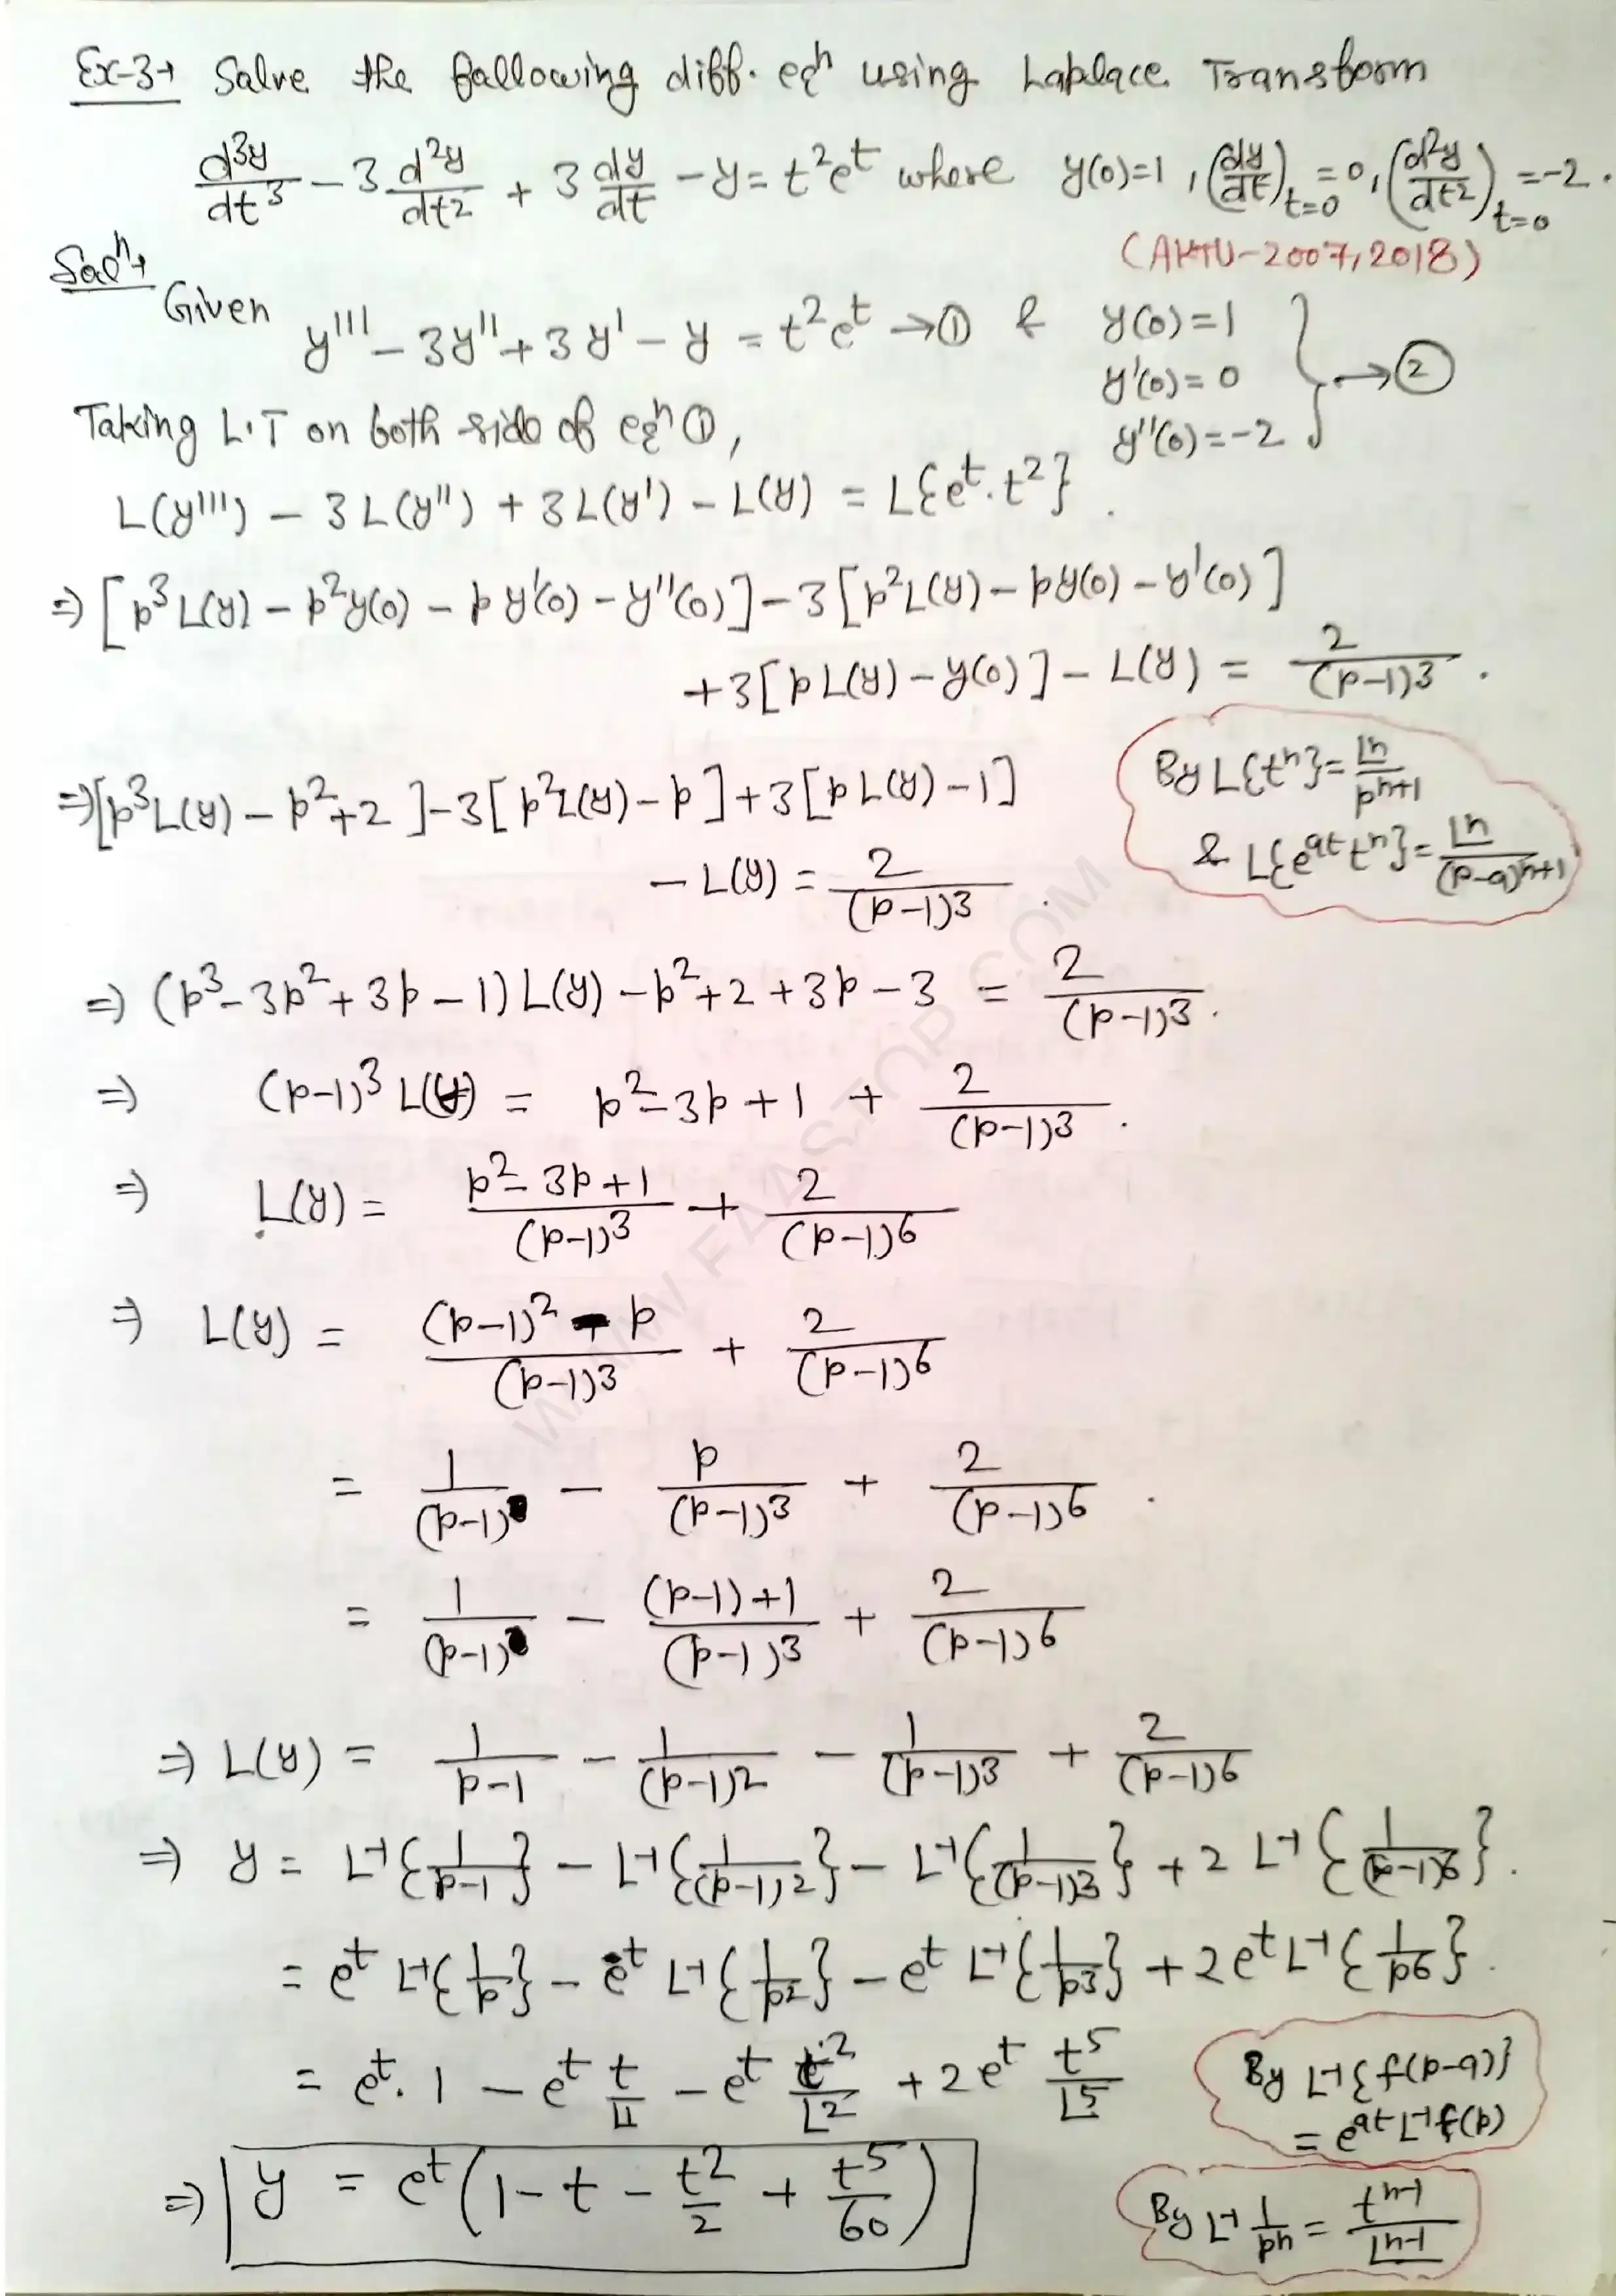 Ex-3→ Solve the following diff. eqⁿ using Laplace Transform
d³y/dt³ − 3 d²y/dt² + 3 dy/dt − y = t²eᵗ where y(0)=1, (dy/dt)ₜ₌₀ = 0, (d²y/dt²)ₜ₌₀ = −2.
(AKTU-2007, 2018)
Solⁿ→
Given y''' − 3y'' + 3y' − y = t²eᵗ → ① & y(0)=1
y'(0)=0 } → ②
y''(0)=−2
Taking L.T on both side of eqⁿ ①,
L(y''') − 3L(y'') + 3L(y') − L(y) = L{eᵗ.t²}.
⇒ [p³L(y) − p²y(0) − py'(0) − y''(0)] − 3[p²L(y) − py(0) − y'(0)]
+3[pL(y) − y(0)] − L(y) = 2/(p−1)³.
⇒ [p³L(y) − p²+2] − 3[p²L(y) − p] + 3[pL(y) − 1]
− L(y) = 2/(p−1)³.
By L{tⁿ} = ⌊n/pⁿ⁺¹
& L{eᵃᵗtⁿ} = ⌊n/(p−a)ⁿ⁺¹
⇒ (p³−3p²+3p−1)L(y) − p²+2+3p−3 = 2/(p−1)³.
⇒ (p−1)³L(y) = p²−3p+1 + 2/(p−1)³.
⇒ L(y) = (p²−3p+1)/(p−1)³ + 2/(p−1)⁶
⇒ L(y) = ((p−1)² − p)/(p−1)³ + 2/(p−1)⁶
= 1/(p−1) − p/(p−1)³ + 2/(p−1)⁶.
= 1/(p−1) − ((p−1)+1)/(p−1)³ + 2/(p−1)⁶
⇒ L(y) = 1/(p−1) − 1/(p−1)² − 1/(p−1)³ + 2/(p−1)⁶
⇒ y = L⁻¹{1/(p−1)} − L⁻¹{1/(p−1)²} − L⁻¹{1/(p−1)³} + 2L⁻¹{1/(p−1)⁶}.
= eᵗ L⁻¹{1/p} − eᵗ L⁻¹{1/p²} − eᵗ L⁻¹{1/p³} + 2eᵗ L⁻¹{1/p⁶}.
= eᵗ.1 − eᵗ t/⌊1 − eᵗ t²/⌊2 + 2eᵗ t⁵/⌊5
By L⁻¹{f(p−a)}
= eᵃᵗ L⁻¹f(p)
⇒ y = eᵗ(1 − t − t²/2 + t⁵/60)
By L⁻¹ 1/pⁿ = tⁿ⁻¹/⌊n−1
WWW.FAASTOP.COM